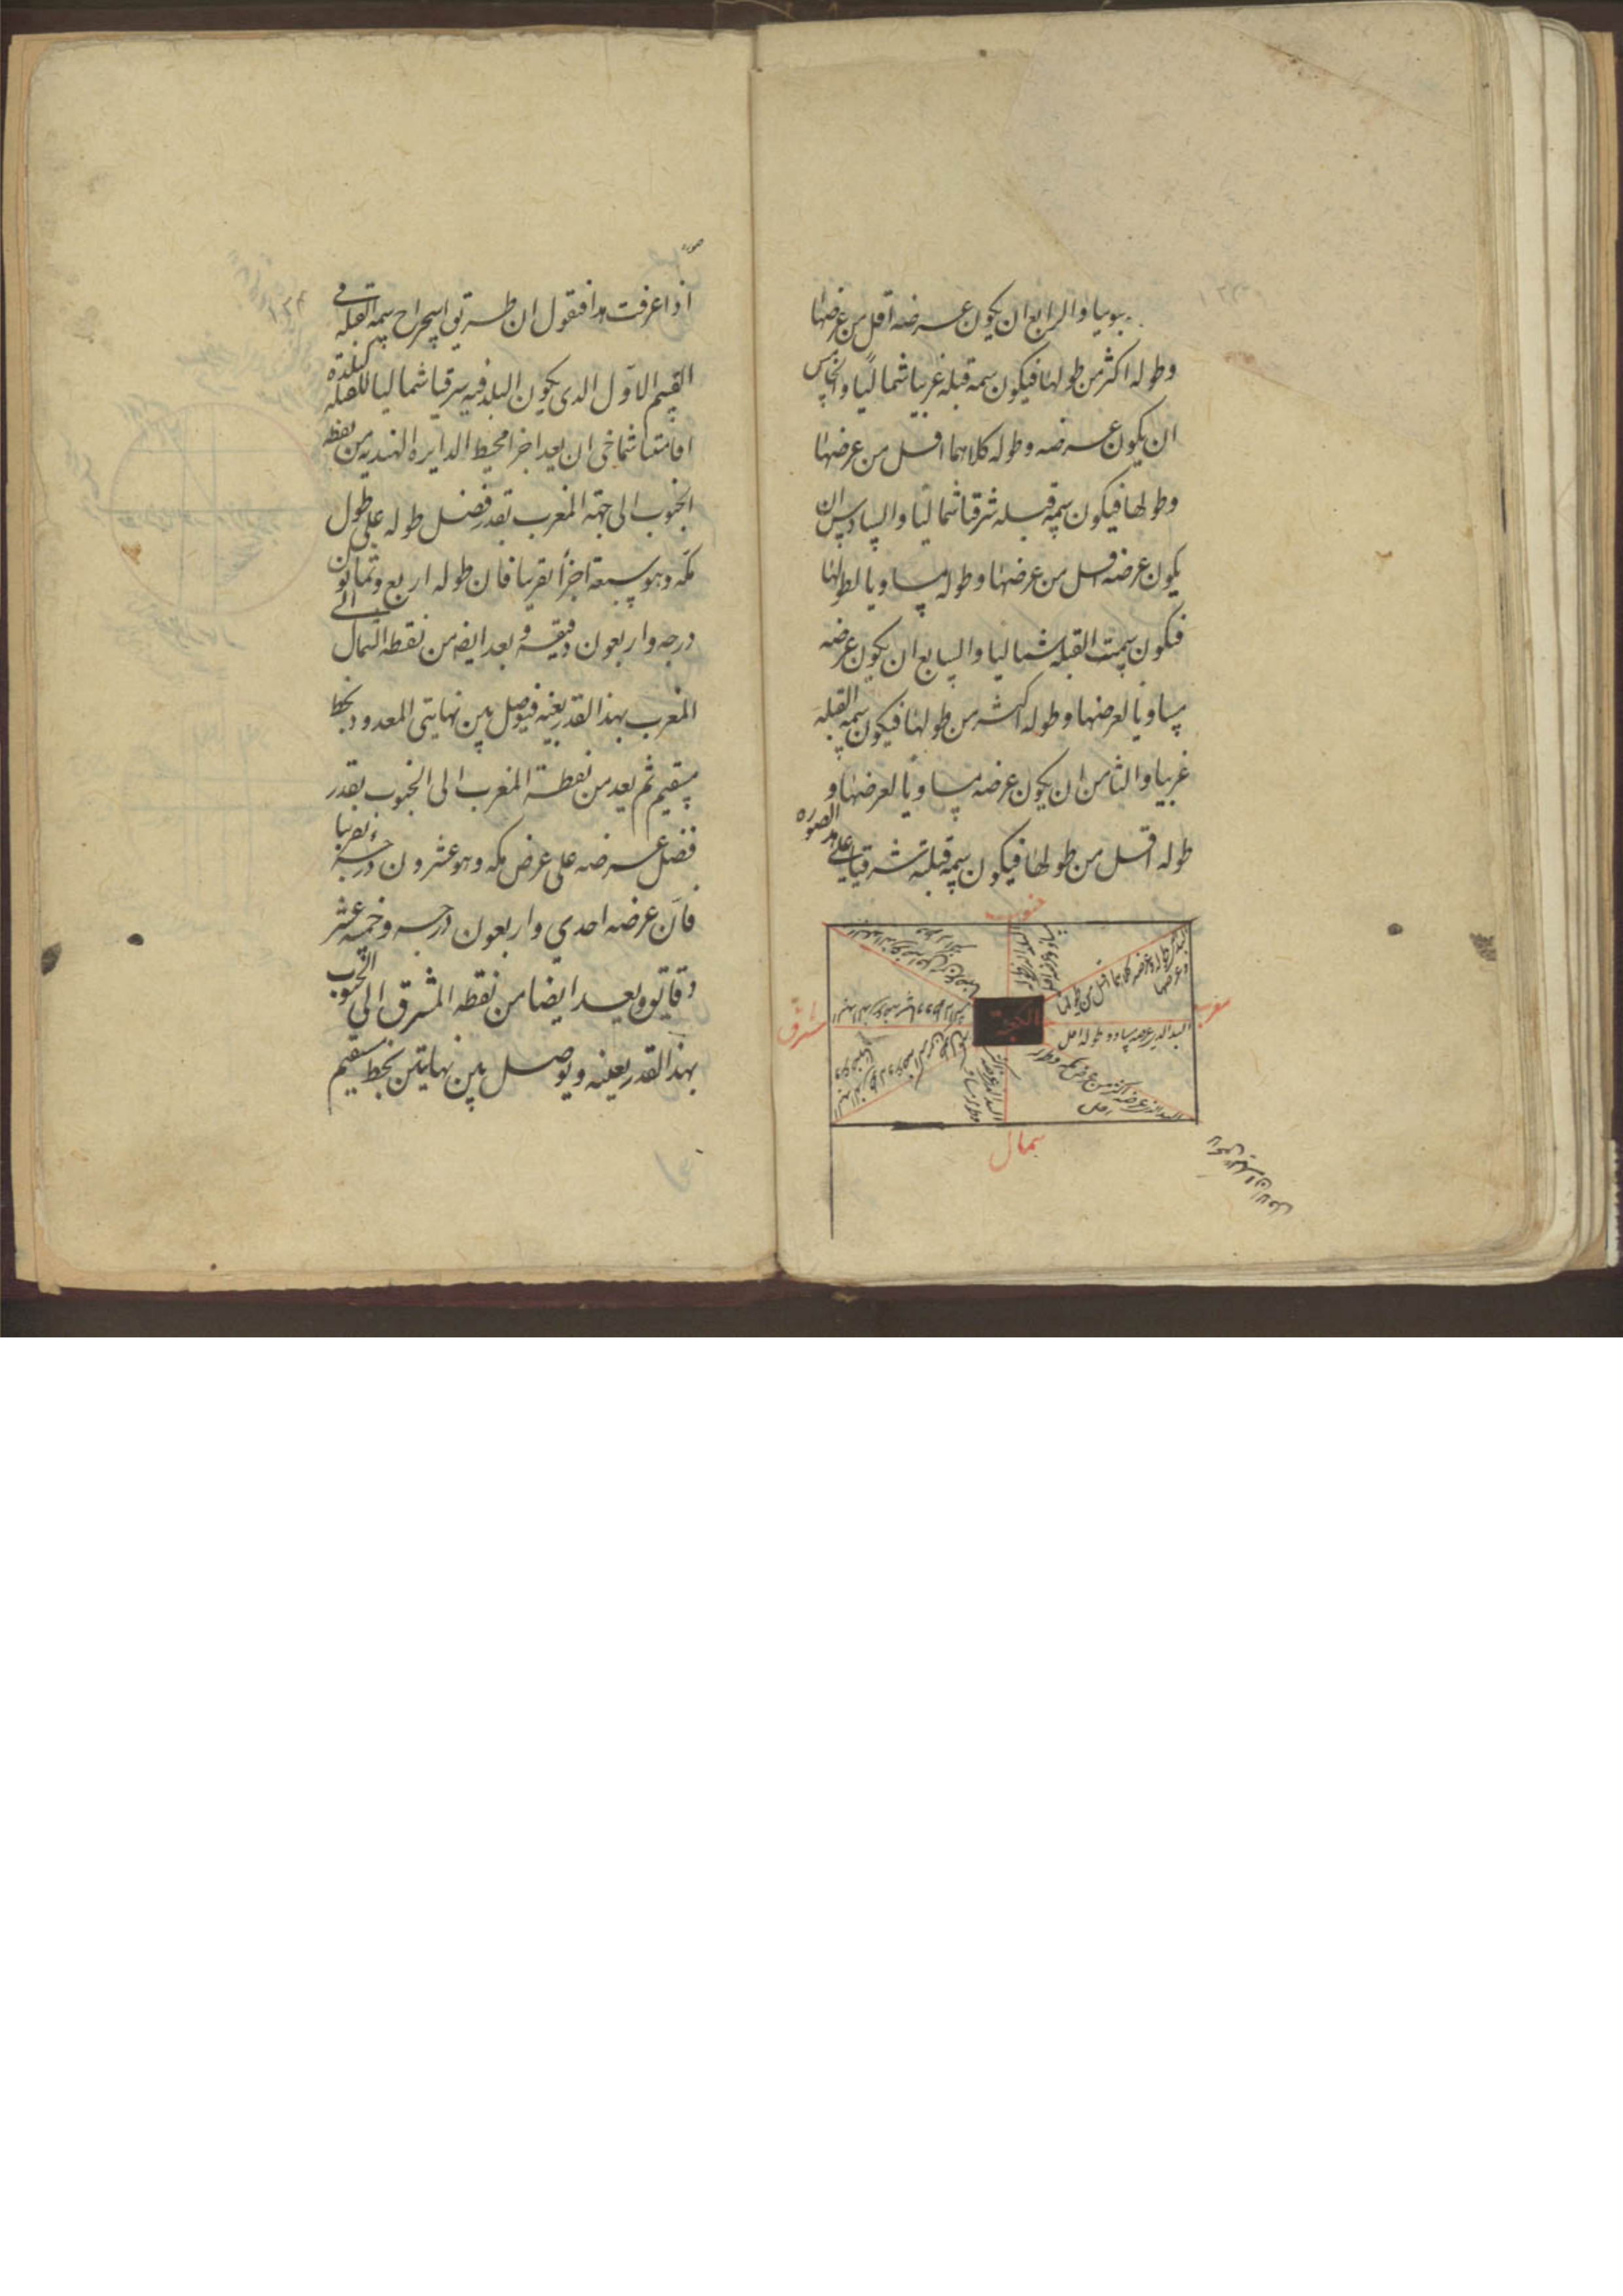 جنوبيا والرابع ان يكون عرضه اقل من عرضها
وطوله اكثر من طولها فيكون سمة قبله غربيا شماليا والخامس
ان يكون عرضه وطوله كلاهما اقل من عرضها
وطولها فيكون سمة قبله شرقيا شماليا والسادس ان
يكون عرضه اقل من عرضها وطوله مساويا لطولها
فيكون سمت القبله شماليا والسابع ان يكون عرضه
مساويا لعرضها وطوله اكثر من طولها فيكون سمه القبلة
غربيا والثامن ان يكون عرضه مساويا لعرضها و
طوله اقل من طولها فيكون سمة قبلته شرقيا على هذه الصوره
جنوب
مغرب
الكعبة
مشرق
شمال
صوره
اذا عرفت هذا فنقول ان طريق استخراج سمة القبلة فى
القسم الاول الذى يكون البلد فيه شرقيا شماليا للقبله كبلدة
اقامتنا شماخى ان يعد اجزا محيط الدايره الهنديه من نقطه
الجنوب الى جهة المغرب بقدر فضل طوله على طول
مكه وهو سبعة اجزأ تقريبا فان طوله اربع وثمانون
درجه واربعون دقيقه ويعد ايضه من نقطه الشمال الى
المغرب بهذا القدر بعينه فيوصل بين نهايتى المعدود بخط
مستقيم ثم يعد من نقطة المغرب الى الجنوب بقدر
فضل عرضه على عرض مكه وهو عشرون درجه تقريبا
فان عرضه احدي واربعون درجه وخمسه عشر
دقايق ويعد ايضا من نقطه المشرق الى الجنوب
بهذا القدر بعينه ويوصل بين نهايتين بخط مستقيم